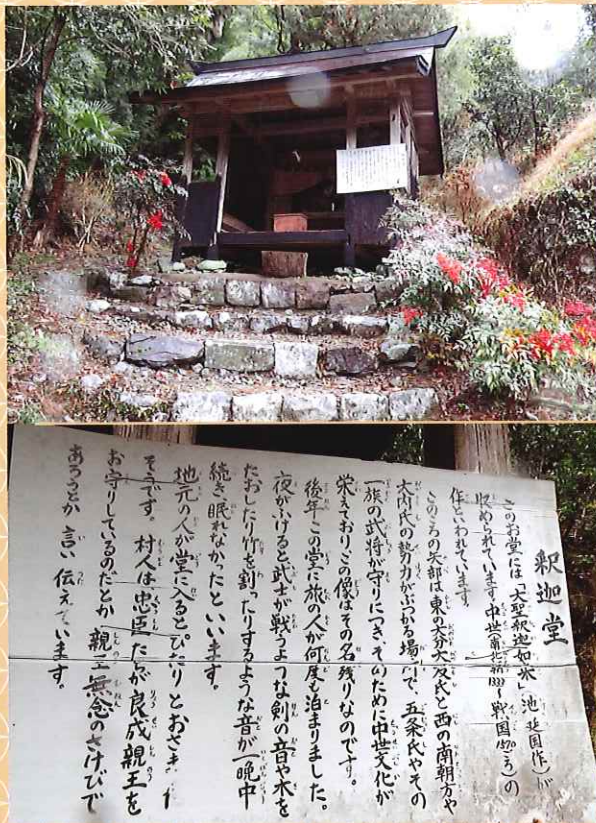 釈迦堂
このお堂には「大聖釈迦如来」池延国作)が
収められています。中世(南北朝1333〜戦国ころ)の
作といわれています。
このころの矢部は東の大分大友氏と西の南朝方や
大内氏の勢力がぶつかる場で、五条氏やその
一族の武将が守りにつき、そのために中世文化が
栄えており、この像はその名残りなのです。
後年この堂に旅の人が何度も泊まりました。
夜がふけると武士が戦うような剣の音や木を
たおしたり竹を割ったりするような音が一晩中
続き眠れなかったといいます。
地元の人が堂に入るとぴたりとおさま
そうです。村人は忠臣たちが良成親王を
お守りしているのだとか、親王無念のさけびで
あろうとか言い伝えています。